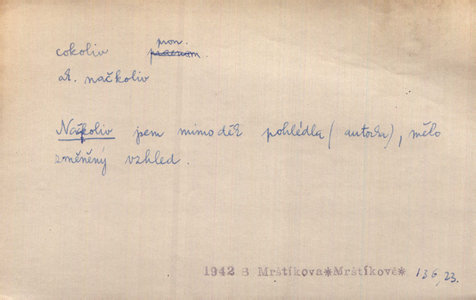 cokoliv pron.
ak. načkoliv
Načkoliv jsem mimoděk pohlédla (autorka), mělo
změněný vzhled.
1942 S Mrštíkova*Mrštíkové* 136, 23.